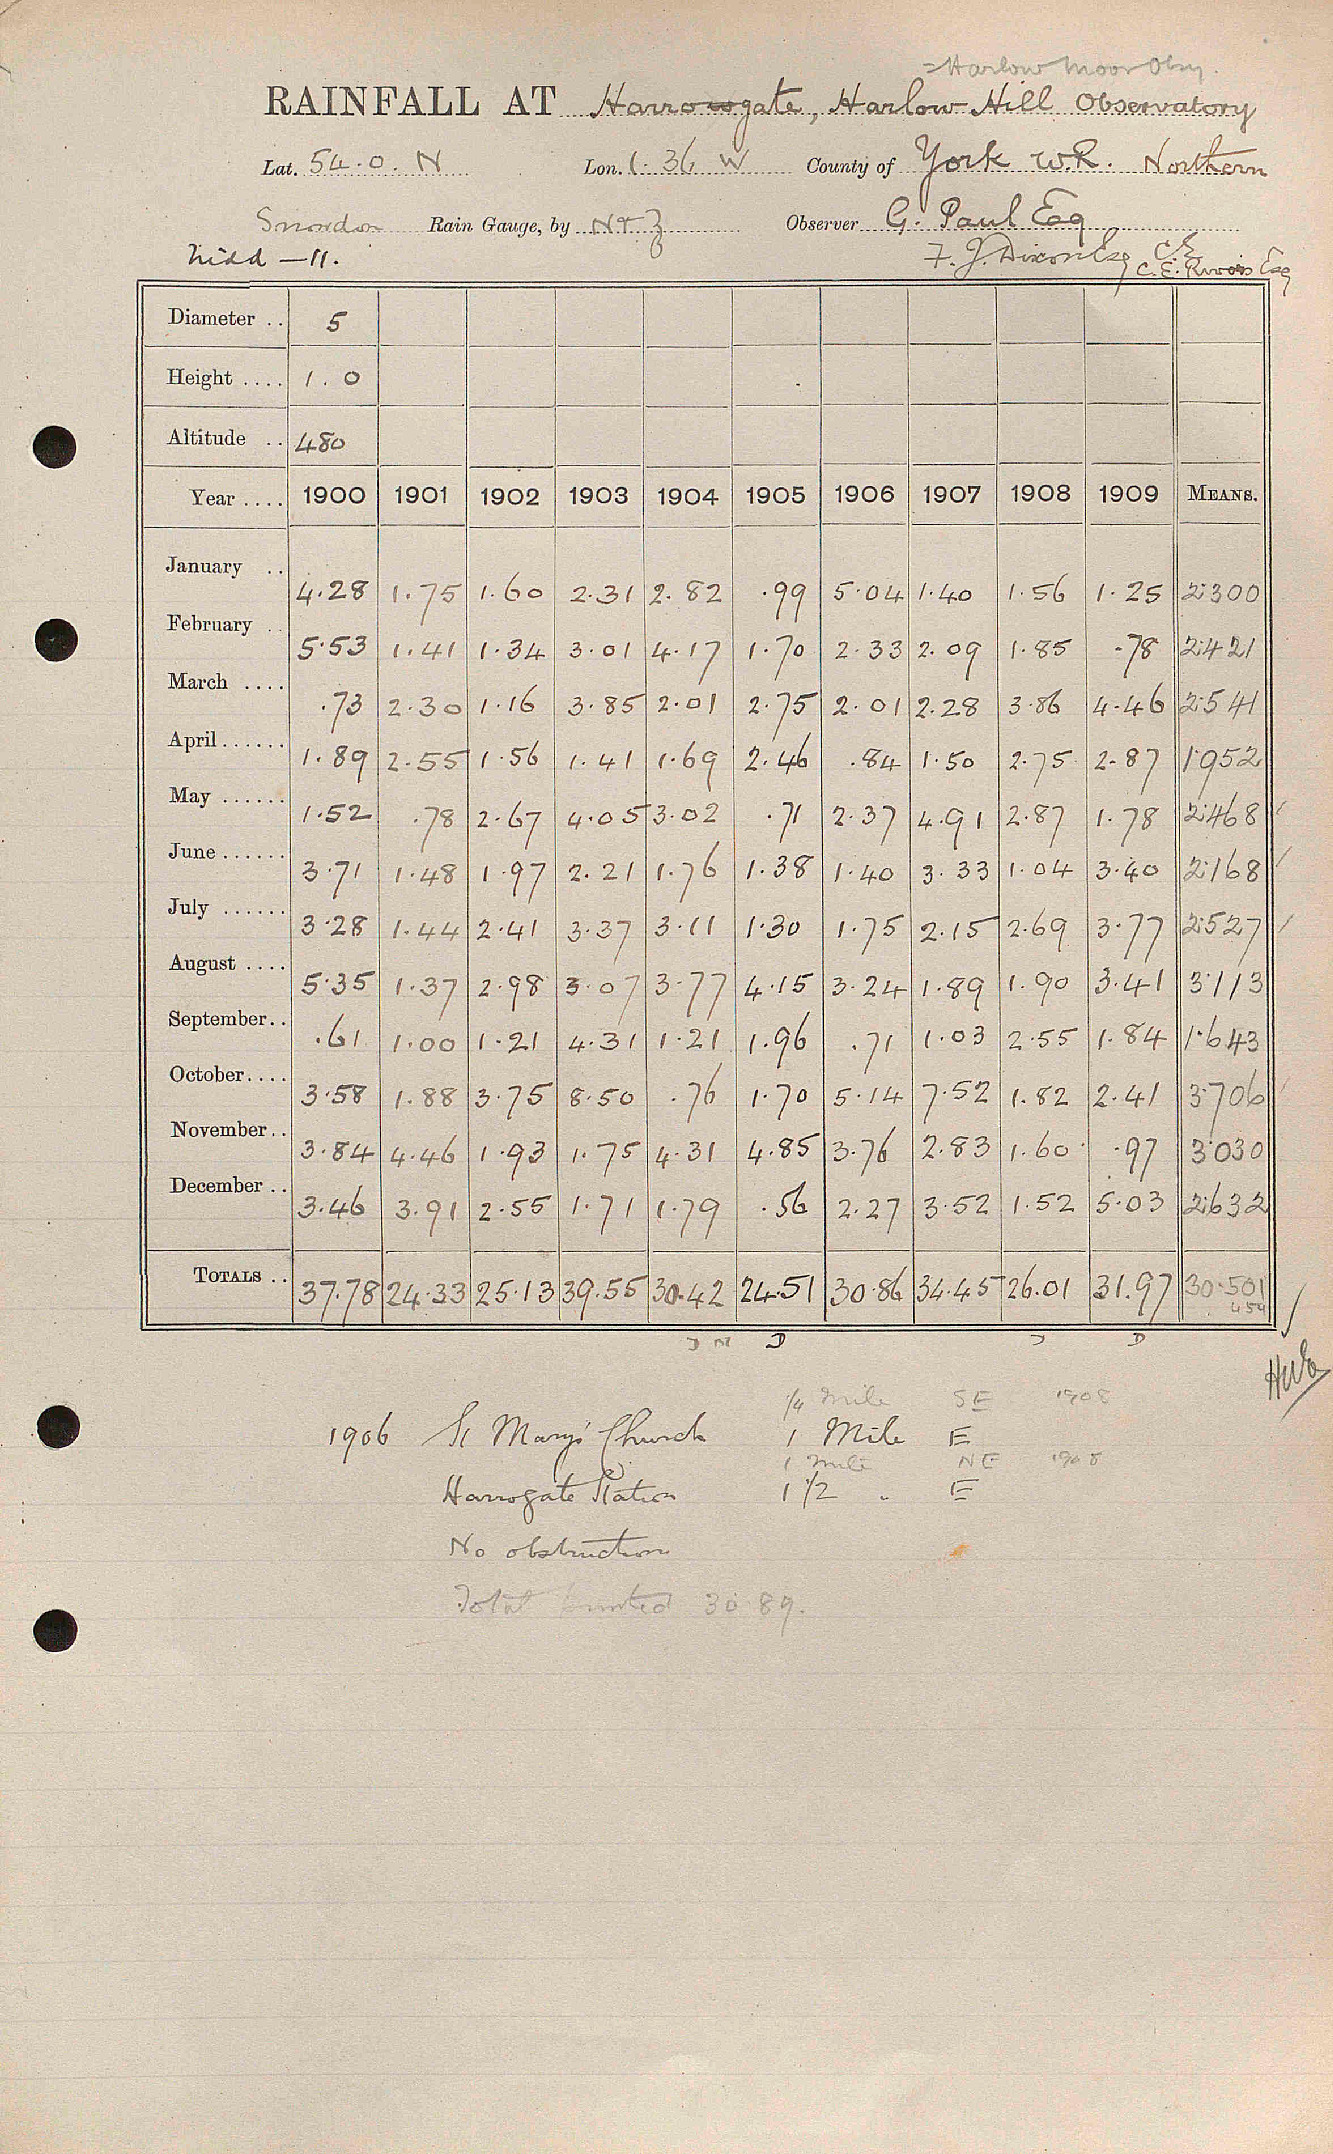 = Harlow Moor Obsy.
RAINFALL AT Harrowgate, Harlow Hill Observatory
Lat. 54.0. N Lon. 1. 36 W County of York W.R. Northern
Snowdon Rain Gauge, by N & Z Observer G. Paul Esq
Nidd — 11. F. J. Dixon Esq C.E.
C. E. Rivers Esq
Diameter .. 5
Height .... 1.0
Altitude .. 480
Year .... 1900 1901 1902 1903 1904 1905 1906 1907 1908 1909 MEANS.
January .. 4.28 1.75 1.60 2.31 2.82 .99 5.04 1.40 1.56 1.25 2.300
February .. 5.53 1.41 1.34 3.01 4.17 1.70 2.33 2.09 1.85 .78 2.421
March .... .73 2.30 1.16 3.85 2.01 2.75 2.01 2.28 3.86 4.46 2.541
April ...... 1.89 2.55 1.56 1.41 1.69 2.46 .84 1.50 2.75 2.87 1.952
May ...... 1.52 .78 2.67 4.05 3.02 .71 2.37 4.91 2.87 1.78 2.468
June ...... 3.71 1.48 1.97 2.21 1.76 1.38 1.40 3.33 1.04 3.40 2.168
July ...... 3.28 1.44 2.41 3.37 3.11 1.30 1.75 2.15 2.69 3.77 2.527
August .... 5.35 1.37 2.98 3.07 3.77 4.15 3.24 1.89 1.90 3.41 3.113
September.. .61 1.00 1.21 4.31 1.21 1.96 .71 1.03 2.55 1.84 1.643
October.... 3.58 1.88 3.75 8.50 .76 1.70 5.14 7.52 1.82 2.41 3.706
November.. 3.84 4.46 1.93 1.75 4.31 4.85 3.76 2.83 1.60 .97 3.030
December .. 3.46 3.91 2.55 1.71 1.79 .56 2.27 3.52 1.52 5.03 2.632
TOTALS .. 37.78 24.33 25.13 39.55 30.42 24.51 30.86 34.45 26.01 31.97 30.501
454
D M D D D
1/4 mile SE 1908
1906 St Mary's Church 1 Mile E
1 mile NE 1908
Harrogate Station 1 1/2 " E
No obstruction
Total printed 30 89.